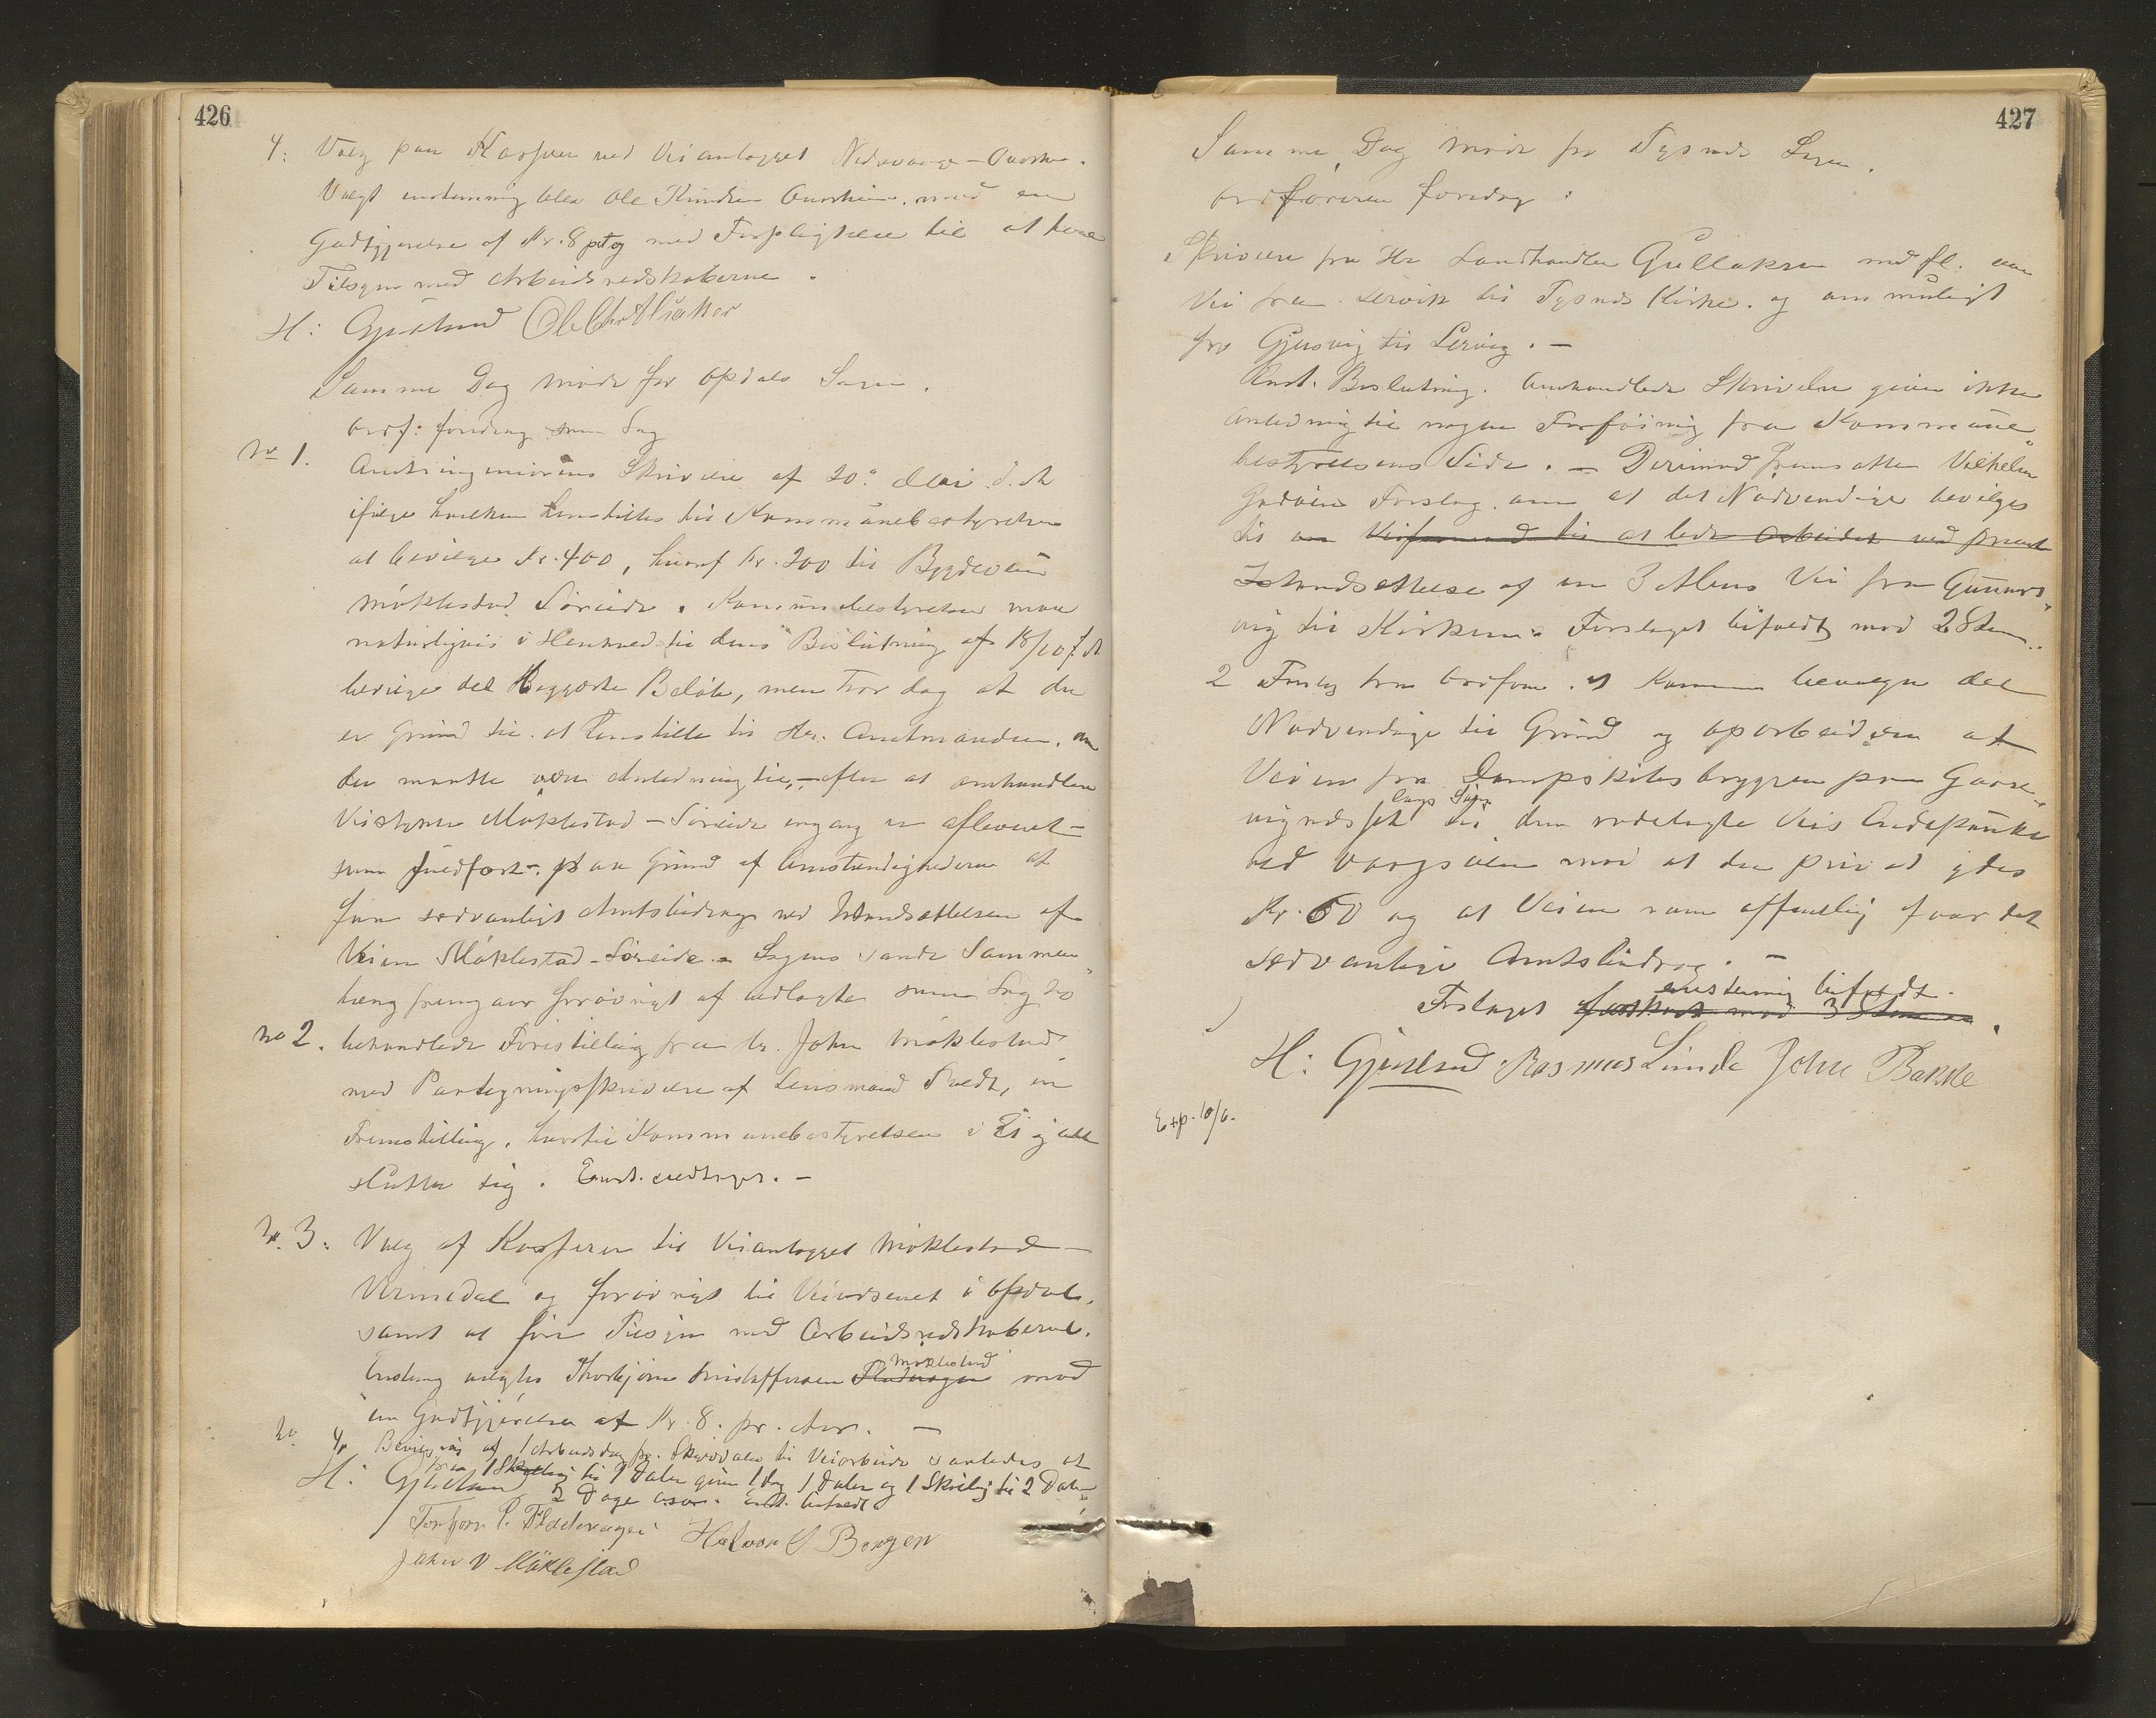 426
4: Valg paa Kasserer ved Veianlægget Nedrevaage - Onarheim.
Valgt enstemmig blev Ole Knudsen Onarheim, mod en
Godtgjørelse af Kr. 8 og med Forpligtelse til at have
Tilsyn med Arbeidsredskaberne.
H: Gjøelsund Ole Chr Alsaker
Samme Dag Møde for Opdals Sogn.
Ordf: foredrog som Sag
No 1. Amtsingeniørens Skrivelse af 20de Mai d. A.
ifølge hvilken henstilles til Kommunebestyrelsen
at bevilge Kr. 400, hvoraf Kr. 200 til Bygdeveien
Møklestad Søreide. Kommunebestyrelsen maa
naturligvis i Henhold til dens Beslutning af 18/10 f. A.
bevilge det Begjærte Beløb, men tror dog at der
er Grund til at henstille til Hr. Amtmanden, om
der maatte være Anledning til, - efter at omhandlede
Veistykke Møklestad - Søreide engang er afleveret -
som fuldført - paa Grund af Omstændighederne at
faa sædvanligt Amtsbidrag ved Istandsættelsen af
Veien Møklestad - Søreide - Sagens sande Sammen„
hæng fremgaar forøvrigt af vedlagte som Sag No
No 2. behandlede Forestilling fra Hr. John Møklestad
med Paategningsskrivelse af Lensmand Tvedt, en
Fremstilling, hvortil Kommunebestyrelsen i Et og alt
slutter sig. Enst. vedtaget. -
No. 3. Valg af Kasserer til Veianlægget Møklestad -
Vermedal og forøvrigt til Veivæsenet i Opdal,
samt at føre Tilsyn med Arbeidsredskaberne.
Enstemg valgtes Thorbjørn Kristoffersen Flatevagen Møklestad mod
en Godtgjørelse af Kr. 8. pr. Aar. -
No 4. Bevilgning af 1 Arbeidsdag pr. Skyldaler til Veiarbeide saaledes at
fra 1 Skilling til 1 Daler gives 1 Dag 1 Daler og 1 Skilling til 2 Daler
2 Dage osv. Enst. bifaldt
H: Gjøelsund
Torbjørn P. Fladevagen Halvor O Borgen
John V Møklestad
427
Samme Dag Møde for Tysnes Sogn.
Ordføreren foredrog:
1 Skrivelse fra Hr Landhandler Gullaksen med fl. om
Vei fra Lervik til Tysnes Kirke. og om muligt
fra Gjersvig til Lervig. -
Enst. Beslutning. Omhandlede Skrivelse giver ikke
Anledning til nogen Forføining fra Kommune„
bestyrelsens Side. - Derimod fremsatte Vilhelm
Godøen Forslag om at det Nødvendige bevilges
til en Veiformand til at lede Arbeidet ved privat
Istandsættelse af en 3 Alens Vei fra Gunnars„
vig til Kirken. Forslaget bifaldt mod 2 Stem..
2 Forslag fra Ordføre. at Kommunen bevilger det
Nødvendige til Grund og Oparbeidelse af
Veien fra Dampskibsbryggen paa Gaase„
vignesset langs Søen til den ødelagte Veis Endepunkt
ved Vaagsøien mod at der privat ydes
Kr. 60 og at Veien som offentlig faar det
sædvanlige Amtsbidrag. -
Forslaget forkast mod 3 Stemmer. enstemig bifaldt.
H: Gjøelsund Rasmus Lunde John Bakke
Exp. 10/6.